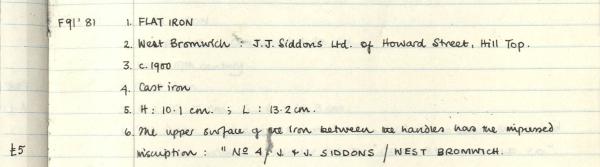 F91'81 1. FLAT IRON
2. West Bromwich : J.J. Siddons Ltd. of Howard Street, Hill Top.
3. c.1900
4. Cast iron
5. H: 10.1 cm. ; L : 13.2 cm.
6. The upper surface of the iron between the handles has the impressed
£5 inscription : " No 4 / J. & J. SIDDONS / WEST BROMWICH.